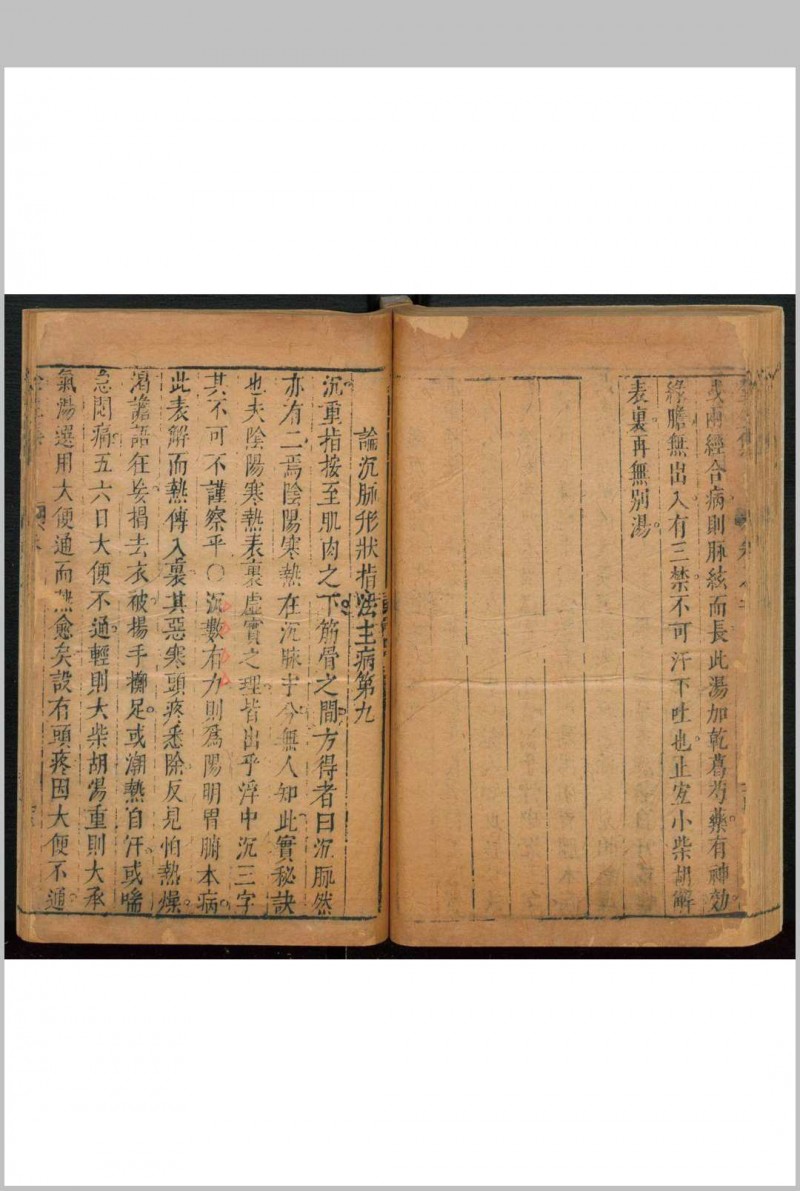 或兩經合病則脉絃而長此湯加乾葛芍藥有神効
緣膽無出入有三禁不可汗下吐也止宜小柴胡解
表裏再無別湯
論沉脉形狀指法主病第九
沉重指按至肌肉之下筋骨之間方得者曰沉脉然
亦有二焉陰陽寒熱在沉脉中今無人知此實秘訣
也夫陰陽寒熱表裏虛實之理皆出乎浮中沉三字
其不可不謹察乎○沉數有力則爲陽明胃腑本病
此表解而熱傳入裏其惡寒頭疼悉除反見怕熱燥
渴譫語狂妄揭去衣被揚手擲足或潮熱自汗或喘
急悶痛五六日大便不通輕則大柴胡湯重則大承
氣湯選用大便通而熱愈矣設有頭疼因大便不通